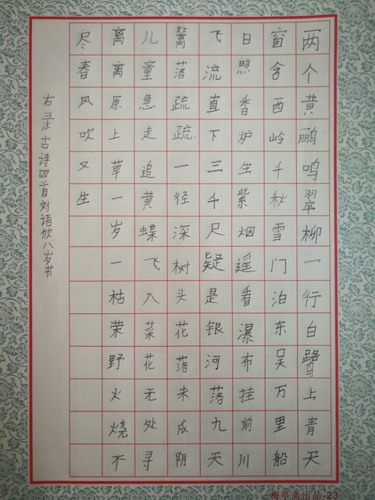 两个黄鹂鸣翠柳一行白鹭上青天
窗含西岭千秋雪门泊东吴万里船
日照香炉生紫烟遥看瀑布挂前川
飞流直下三千尺疑是银河落九天
篱落疏疏一径深树头花落未成阴
儿童急走追黄蝶飞入菜花无处寻
离离原上草一岁一枯荣野火烧不
尽春风吹又生
右录古诗四首刘语欣八岁书
出品